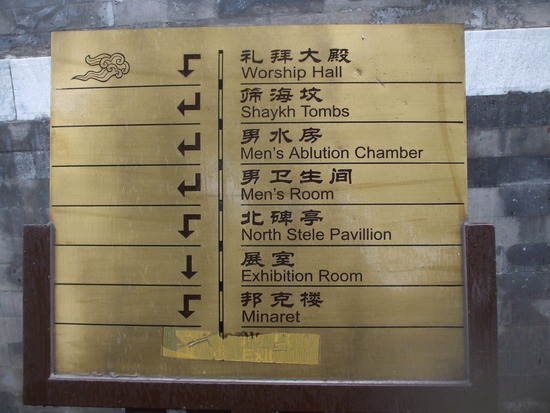 礼拜大殿
Worship Hall
筛海坟
Shaykh Tombs
男水房
Men's Ablution Chamber
男卫生间
Men's Room
北碑亭
North Stele Pavillion
展室
Exhibition Room
邦克楼
Minaret